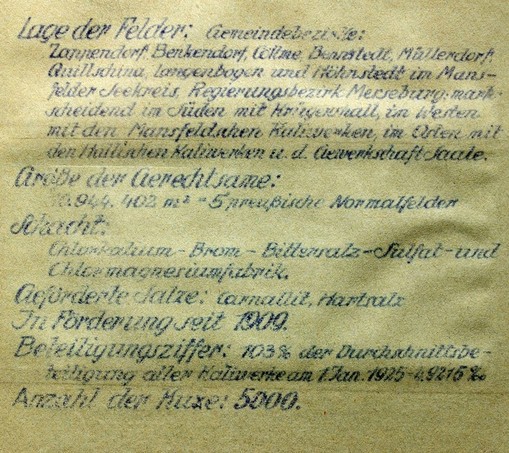 Lage der Felder: Gemeindebezirke:
Zappendorf, Benkendorf, Cöllme, Bennstedt, Müllerdorf,
Quillschina, Langenbogen und Höhnstedt im Mans-
felder Seekreis, Regierungsbezirk Merseburg: mark-
scheidend im Süden mit Krügershall, im Westen
mit den Mansfeldschen Kaliwerken, im Osten mit
den Hallischen Kaliwerken u. d. Gewerkschaft Saale.
Größe der Gerechtsame:
10.944.402 m² = 5 preußische Normalfelder
Schacht:
Chlorkalium - Brom - Bittersalz - Sulfat - und
Chlormagnesiumfabrik.
Geförderte Salze: Carnallit, Hartsalz
In Förderung seit 1909.
Beteiligungsziffer: 103% der Durchschnittsbe-
teiligung aller Kaliwerke am 1. Jan. 1925 = 4,9215 ‰
Anzahl der Kuxe: 5000.